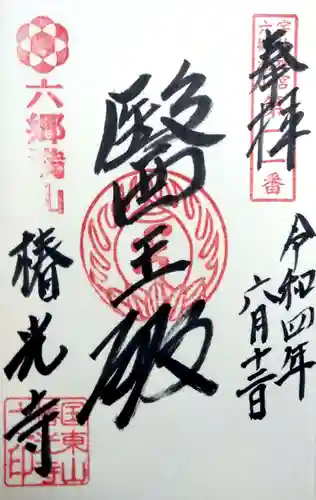 奉拝
令和四年
六月十三日
醫王殿
六郷満山
椿光寺